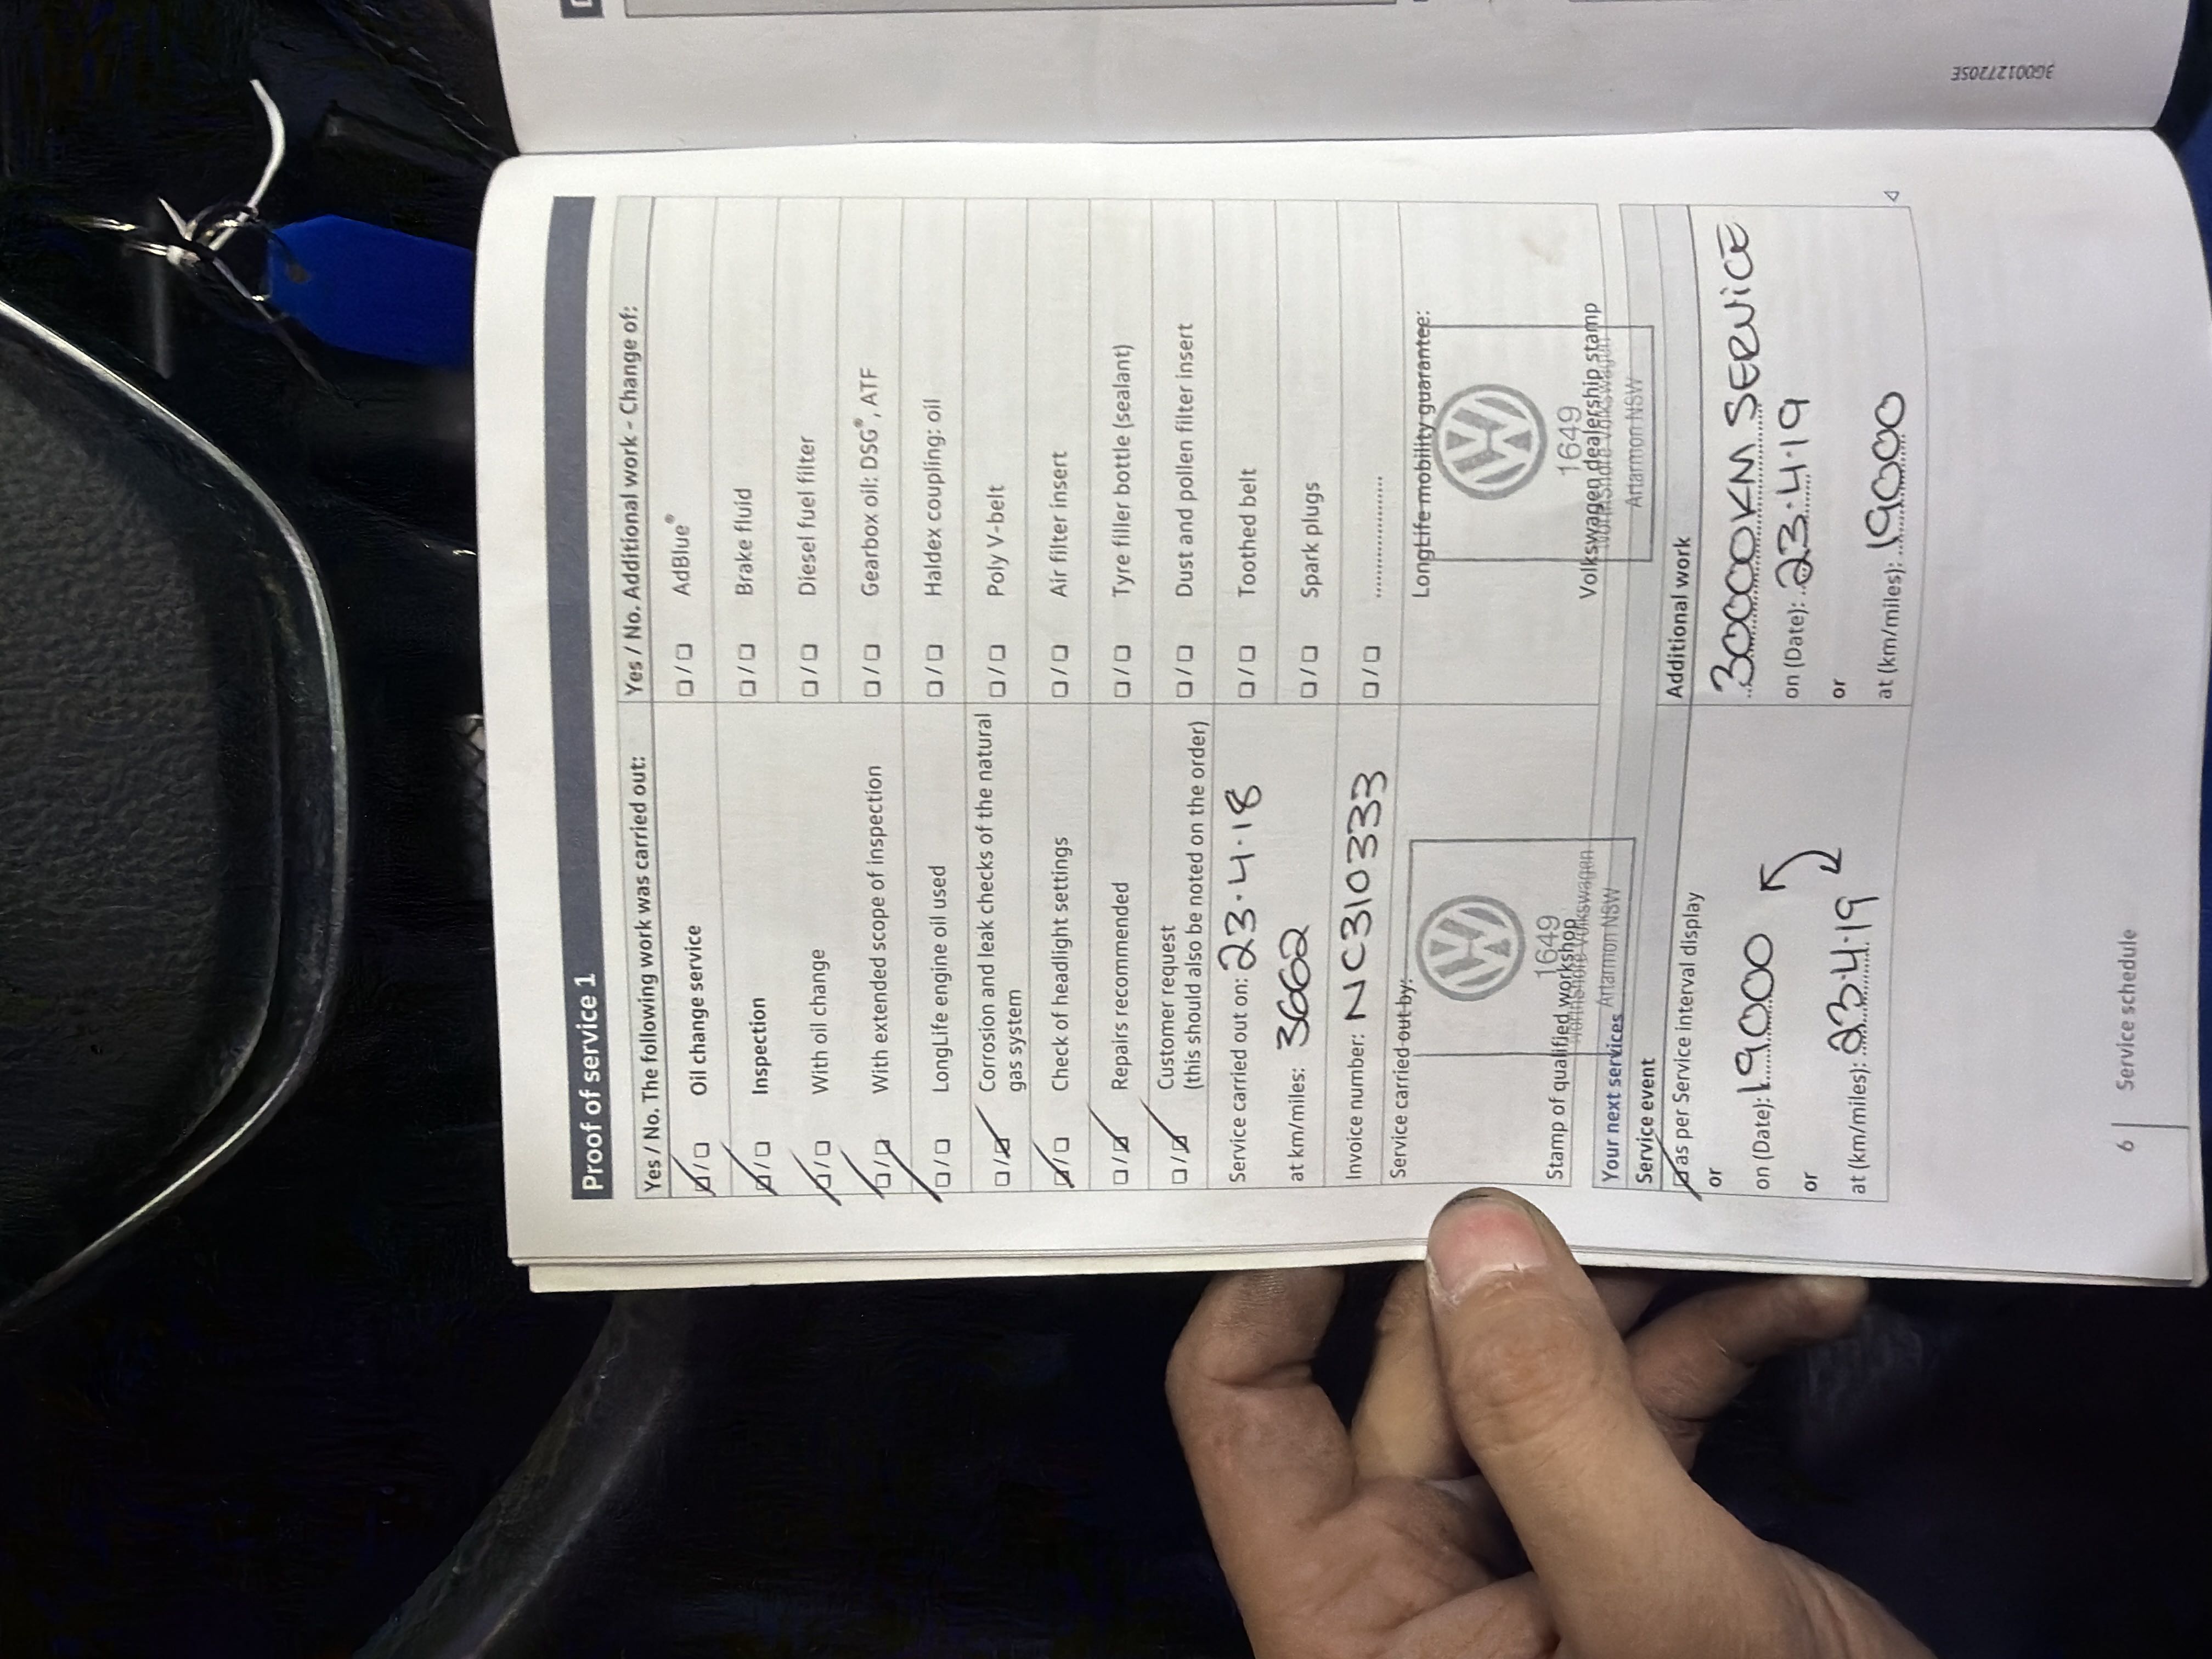 3G0012720SE
Proof of service 1
Yes / No. The following work was carried out:
Oil change service
Inspection
With oil change
With extended scope of inspection
LongLife engine oil used
Corrosion and leak checks of the natural
gas system
Check of headlight settings
Repairs recommended
Customer request
(this should also be noted on the order)
Service carried out on: 23.4.18
at km/miles: 3662
Invoice number: NC310333
Service carried out by:
1649
NorthShore Volkswagen
Stamp of qualified workshop
Artarmon NSW
Yes / No. Additional work - Change of:
AdBlue®
Brake fluid
Diesel fuel filter
Gearbox oil: DSG®, ATF
Haldex coupling: oil
Poly V-belt
Air filter insert
Tyre filler bottle (sealant)
Dust and pollen filter insert
Toothed belt
Spark plugs
....................
LongLife mobility guarantee:
1649
Volkswagen dealership stamp
NorthShore Volkswagen
Artarmon NSW
Your next services
Service event
as per Service interval display
or
on (Date): 19000
or
at (km/miles): 23.4.19
Additional work
30000KM SERVICE
on (Date): 23.4.19
or
at (km/miles): 19000
6 | Service schedule